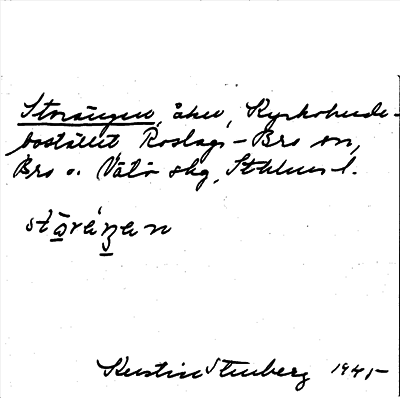 Storängen, åker, Kyrkoherde-
bostället Roslags-Bro sn,
Bro o. Vätö skg, Sthlms l.
stọ̄ráŋ̠an
Kerstin Stenberg 1945